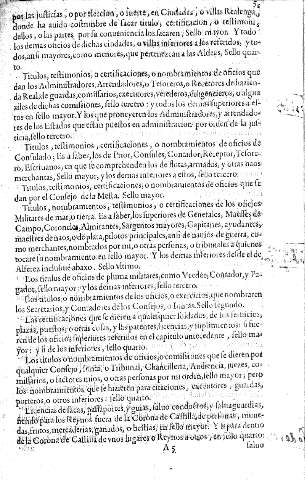 por las justicias, o por eleccion, o suerte, en Ciudades, o villas Realengas,
donde ha auido costumbre de sacar titulo, certificacion, o testimonio
dellos, a las partes, por su conveniencia los sacaren, Sello mayor. Y todo
los demas oficios de dichas ciudades, o villas inferiores a los referidos, y to-
dos, assi mayores, como menores, que pertenezcan a las Aldeas, Sello quar-
to.
Titulos, testimonios, o certificaciones, o nombramientos de oficios que
dan los Administradores, Arrendadores, o Tesoreros, o Receptores de hazien-
da Real de guardas, comissarios, executores, veederos, o algua-
ziles de dichas comissiones, sello tercero: y todos los demas superiores a es-
tos en sello mayor. Y los que proveyeren los Administradores, y arrendado-
res de los Estados que están puestos en administracion por orden de la justi-
cia, sello tercero.
Titulos, testimonios, certificaciones, o nombramientos de oficios de
Consulado; Es a saber, los de Prior, Consules, Contador, Receptor, Tesore-
ro, Escriuanos, en que se comprehenden los de flotas, armadas, y otras naos
merchantas, Sello mayor, y los demas inferiores a estos, sello tercero.
Titulos, testimonios, certificaciones, o nombramientos de oficios que se
dan por el Consejo de la Mesta. Sello mayor.
Titulos, nombramientos, testimonios, o certificaciones de los oficios
Militares de mar, o tierra. Es a saber, los superiores de Generales, Maesses de
Campo, Coroneles, Almirantes, Sargentos mayores, Capitanes, ayudantes,
maestres de naos, o de plata, pilotos principales, assi de navios de guerra, co-
mo merchantes, nombrados por mi, o otras personas, o tribunales a quienes
tocare su nombramiento en sello mayor. Y los demas inferiores desde el de
Alferez inclusiue abaxo. Sello vltimo.
Los titulos de oficios de pluma militares, como Veedor, Contador, y Pa-
gador, sello mayor: y los demas inferiores, sello tercero.
Los titulos, o nombramientos de oficios, o exercicios, que nombraren
los Secretarios, y Contadores de los Consejos, o Juntas. Sello segundo.
Las certificaciones que se dieren a qualesquier soldados, de sus servicios,
plazas, puestos, o otras cosas, y las patentes, licencias, y suplimentos: si fue-
ren de los oficios superiores referidos en el capitulo antecedente, sello ma-
yor: y si de los inferiores, sello quarto.
Los titulos, o nombramientos de oficios, o comissiones que se dieren por
qualquier Consejo, Junta, o Tribunal, Chancilleria, Audiencia, juezes, co-
missarios, o factores mios, o otras personas por mi orden, sello mayor: pero
los nombramientos, que se hazen para citaciones, executores, guardas,
porteros, o otros inferiores: sello quarto.
Licencias de sacas, passaportes, y guias, saluo conductos, y saluaguardias,
siendo para los Reynos fuera de la Corona de Castilla, de personas, mante-
das, frutos, mercaderias, ganados, o bestias, en sello mayor. Y si para dentro
de la Corona de Castilla de vnos lugares o Reynos a otros, en sello quarto:
A 5
saluo